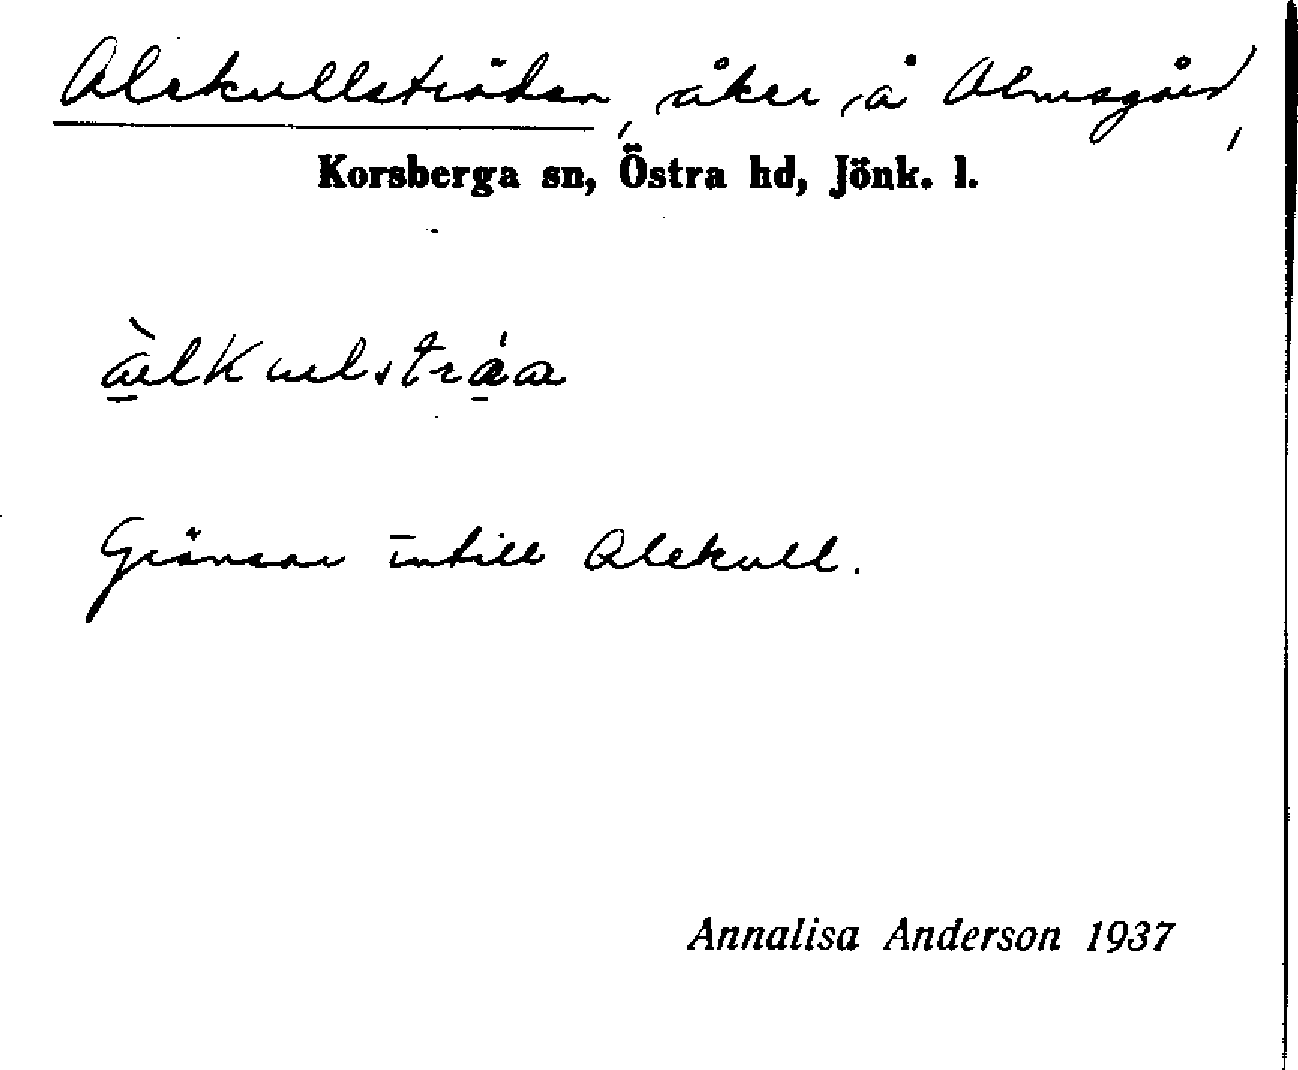 Alekullsträdan, åker å Almsgård,
Korsberga sn, Östra hd, Jönk. l.
Gränsar intill Alekull.
Annalisa Anderson 1937